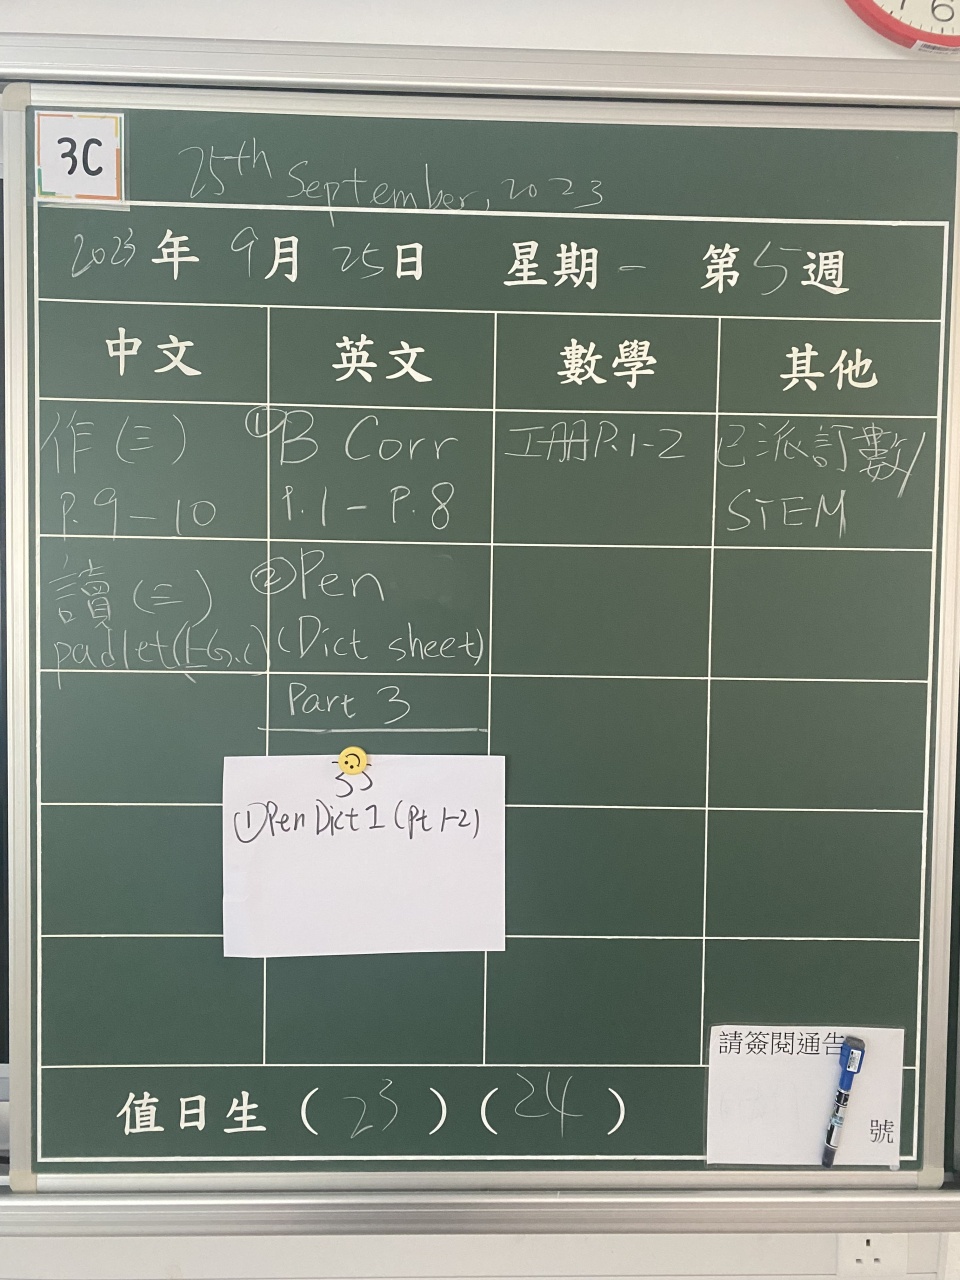 3C
25th September, 2023
2023年 9月 25日 星期一 第5週
中文 英文 數學 其他
作(三)
P.9-10
①B Corr
P.1 - P.8
工冊P.1-2
已派訂數/
STEM
讀(三)
padlet
②Pen
(Dict sheet)
Part 3
①Pen Dict 1 (Pt 1-2)
請簽閱通告
號
值日生 (23) (24)
6